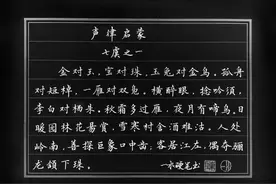 声律启蒙
七虞之一
金对玉，宝对珠，玉兔对金乌。孤舟
对短棹，一雁对双凫。横醉眼，捻吟须，
李白对杨朱。秋霜多过雁，夜月有啼乌。日
暖园林花易赏，雪寒村舍酒难沽。人处
岭南，善探巨象口中齿；客居江左，偶夺骊
龙颔下珠。